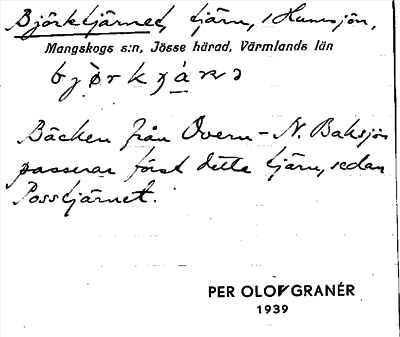 Björktjärnet, tjärn, i Humsjön,
Mangskogs s:n, Jösse härad, Värmlands län
Bäcken från Overn - N. Baksjön
passerar först detta tjärn, sedan
Posstjärnet.
PER OLOF GRANÉR
1939